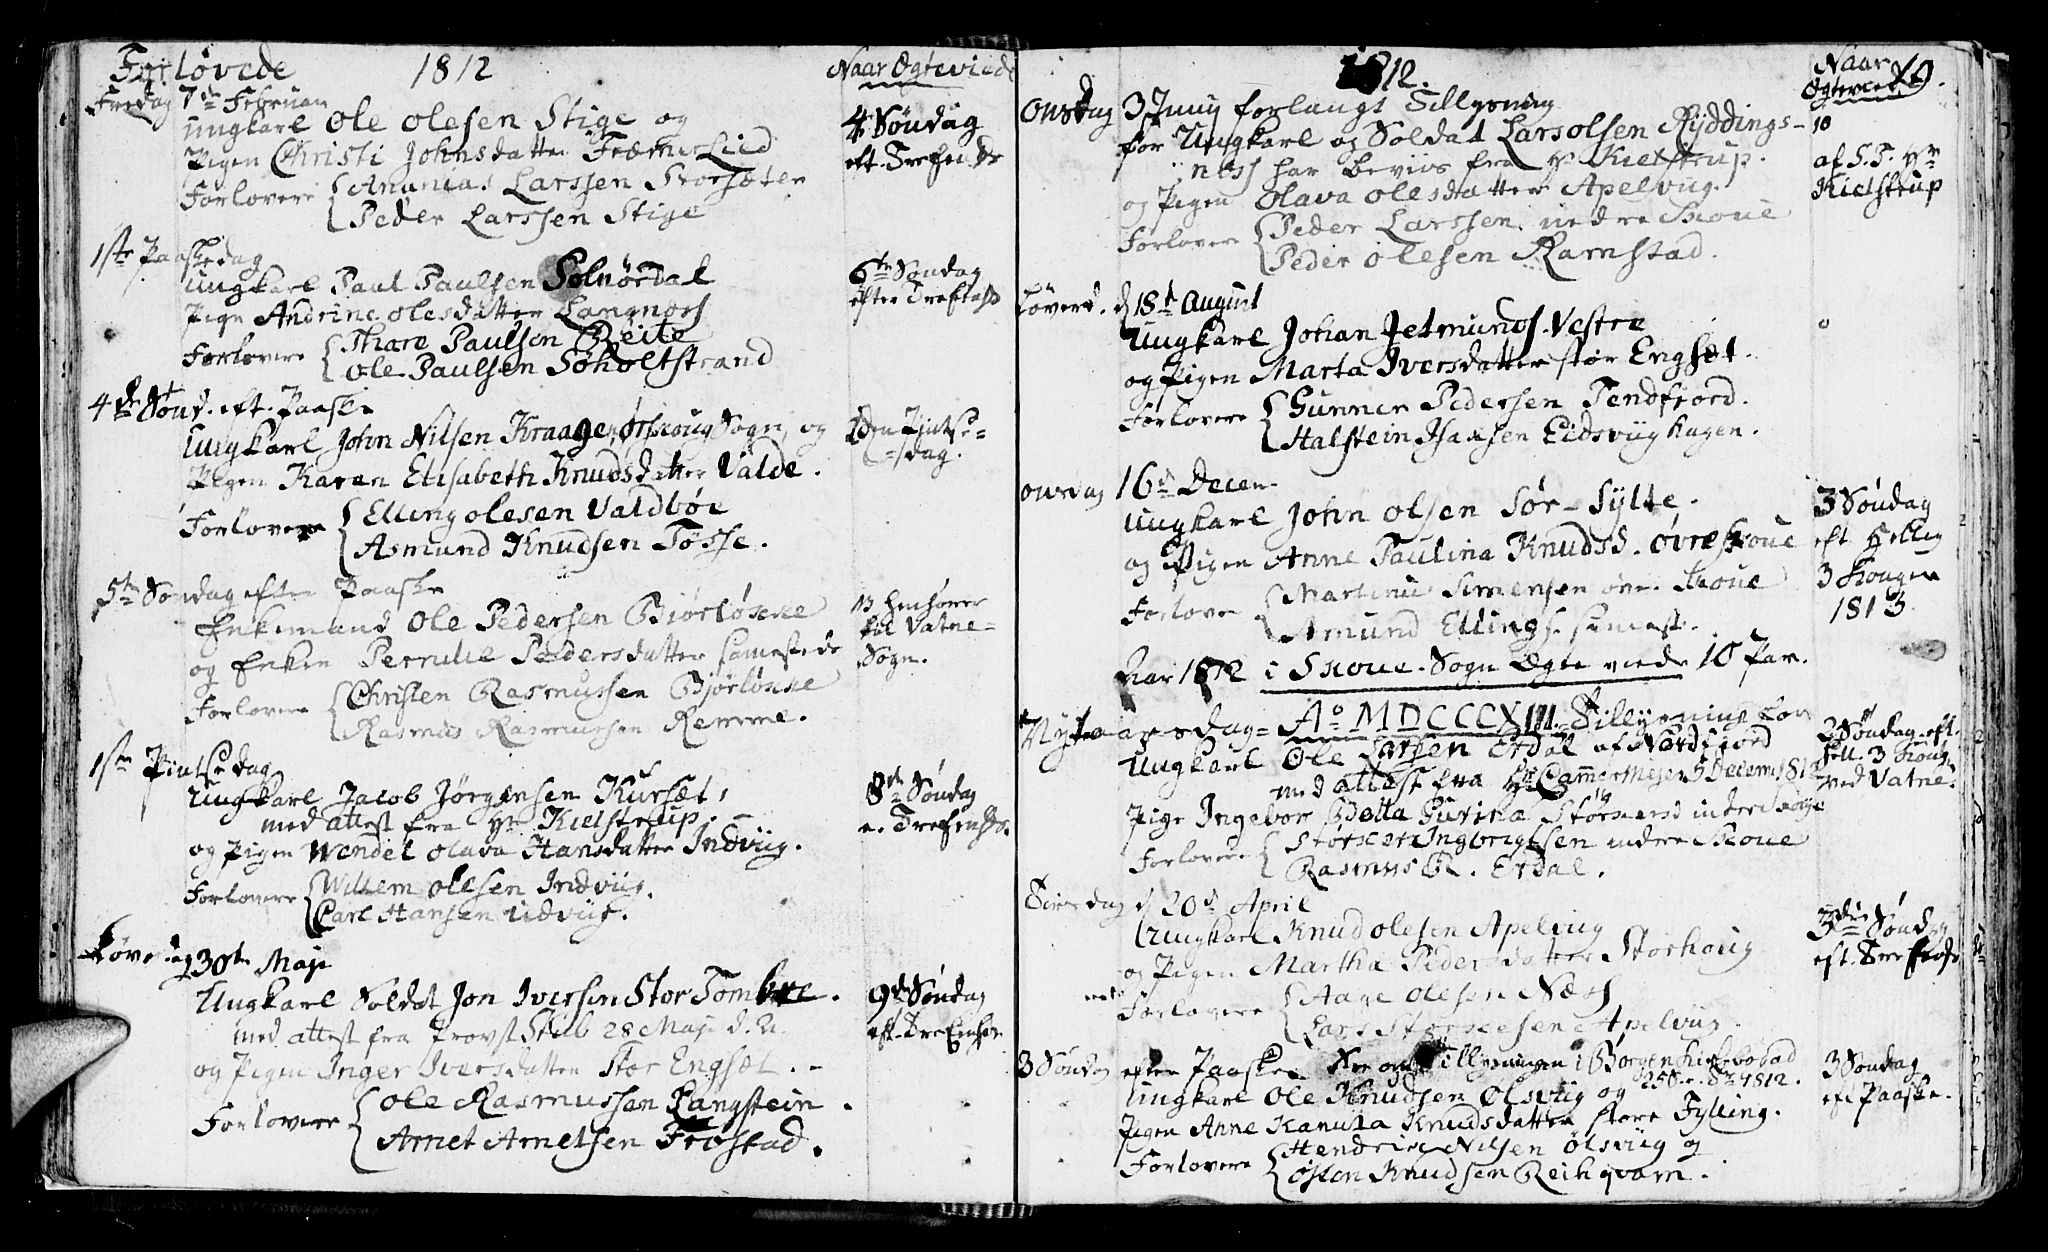 Forlovede 1812 Naar Ægteviede
Fredag 7de Februari
Ungkarl Ole Olesen Stige og
Pigen Christi Johnsdatter Fræmerlied
Forlovere Ananias Larssen Storsæter
Peder Larssen Stige
4 Søndag
eft.
1ste Paaskedag
Ungkarl Paul Paulsen Solnørdal
Pige Andrine Olesdatter Langnæss
Forlovere Thore Paulsen Reite
Ole Paulsen Søholtstrand
6te Søndag
efter
4de Sønd. eft. Paaske
Ungkarl John Nilsen Kraagen, Ørskoug Sogn, og
Pigen Karen Elisabeth Knudsdatter Valde.
Forlovere Elling Olesen Valdbøe
Asmund Knudsen Tøsse.
2den Pintse=
=dag.
5te Søndag efter Paaske
Enkemand Ole Pedersen Biørløkke
og Enken Pernille Pedersdatter samestede
Forlovere Christen Rasmussen Bjørløkke
Rasmus Rasmussen Remme.
henhører
til Vatne=
Sogn.
1ste Pintsedag
Ungkarl Jacob Jørgensen Kurset,
med attest fra Hr Kielstrup.
og Pigen Wendel Olava Hansdatter Indviig.
Forlovere Willem Olesen Indviig.
Carl Hansen Udviig.
8de Søndag
Løverdag 30te Maji
Ungkarl Soldat Jon Iversen Stor Tombre.
med attest fra Provst Stub 28 Maji d. A.
og Pigen Inger Iversdatter Stor Engset.
Forlovere Ole Rasmussen Langstein.
Arnet Arnetsen Frostad.
9de Søndag
eft.
1812. Naar
Ægteviede 19.
Onsdag 3 Juny forlangt Tillysning
for Ungkarl og Soldat Lars Olsen Ryddings-
ness har beviis fra Hr Kielstrup.
og Pigen Olava Olesdatter Apelviig.
Forlovere Peder Larssen nedre Skoue
Peder Olesen Ramstad.
10
af S.P. Hr
Kielstrup
Løverd. d 18de August
Ungkarl Johan Jetmunds. Vestre
og Pigen Marta Iversdatter stor Engset.
Forlovere Gunner Pedersen Tendfiord.
Halstein Isaksen Eidsviighagen.
Onsdag 16de Decem
Ungkarl John Olsen Sør-Sylte.
og Pigen Anne Paulina Knudsd. Øvre Skoue
Forlovere Martinus Simensen øvre Skoue
Amund Ellings. samest.
3 Søndag
eft Hellig
3 Konger
1813
Aar 1812 i Skoue-Sogn Ægteviede 10 Par.
Nytaarsdag= Ao MDCCCXIII. Tillysning for
Ungkarl Ole Larsen Erdal af Nordfjord
med attest fra Hr Cammermejer 5 Decemb 1812
Pige Ingebor Bella Gurina Storkersd nedre Skoge
Forlovere Størker Ingbrigtsen nedre Skoue
Rasmus R. Erdal.
2 Søndag eft.
Hell. 3 Konger
ved Vatne.
Tirsdag d 20de April
Ungkarl Knud Olesen Apelviig
og Pigen Martha Pedersdatter Storhoug
Forlovere Aage Olesen Næss
Lars Størkersen Apelviig.
3die Søndag
eft.
3 Søndag efter Paaske Tillysningen i Borgen Kirkebog
Ungkarl Ole Knudsen Olsviig og 1812.
Pigen Anne Kanuta Knudsdatter store Fylling.
Forlovere Hendrik Nilsen Ølsviig og
Østen Knudsen Reihqvam.
3 Søndag
eft Paaske.